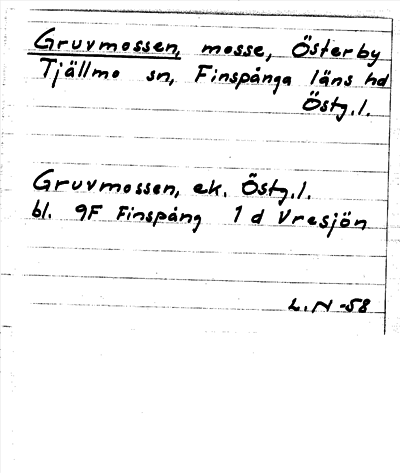 Gruvmossen, mosse, Österby
Tjällmo sn, Finspånga läns hd
Östg.l.
Gruvmossen, ek. Östg.l.
bl. 9F Finspång 1 d Vresjön
L.N -58